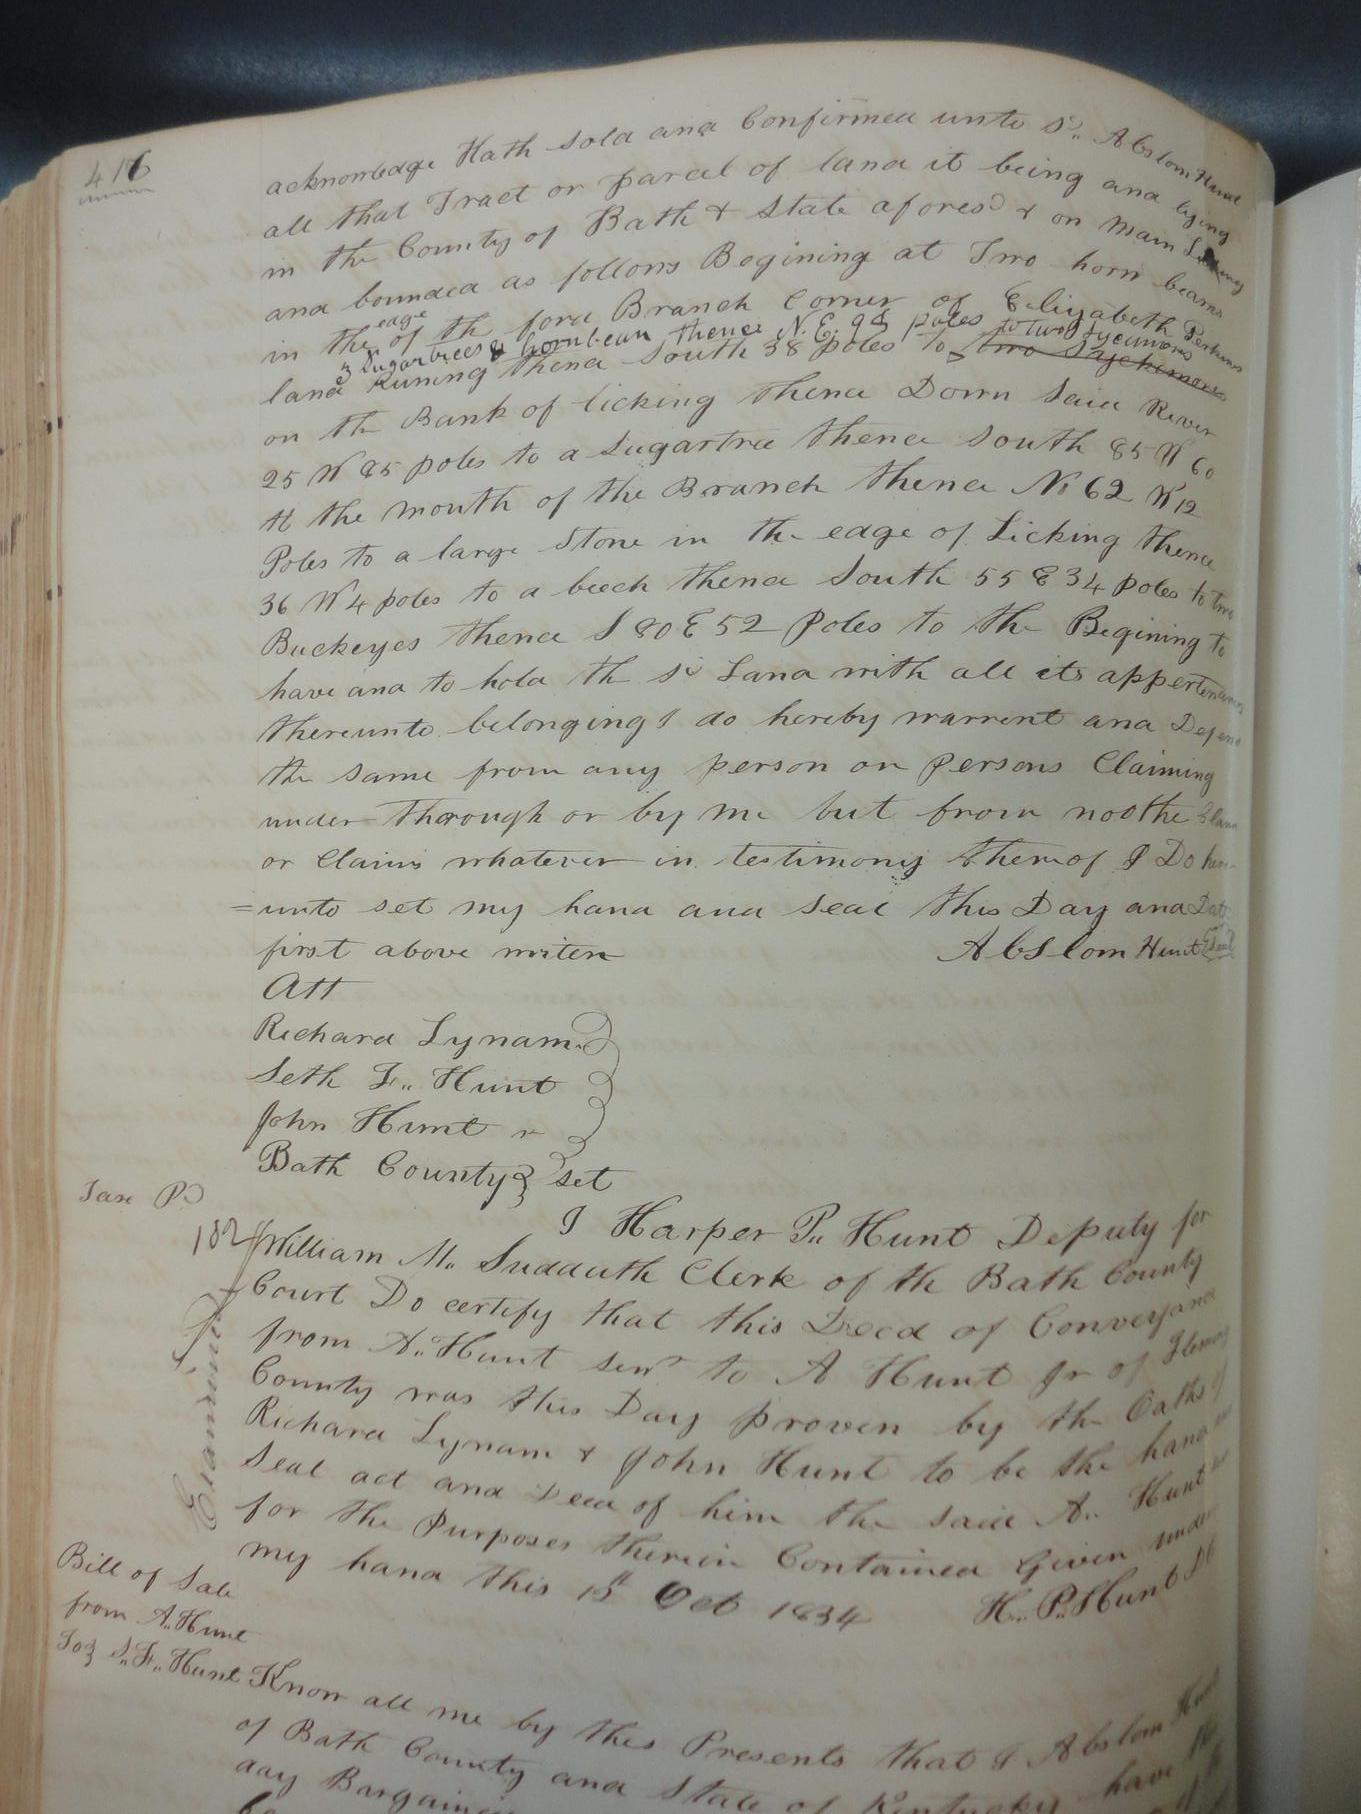 416
acknowledge Hath sold and Confirmed unto sd. Abslom Hunt
all that Tract or parcel of land it being and lying
in the County of Bath & State aforesd & on main Licking
and bounded as follows Begining at Two horn beams
in the edge of the ford Branch Corner of Elizabeth Perkins
3 Sugartrees & hornbean thence N. E. 98 poles to two Sycamores
land Runing thence South 38 poles to two Sycamores
on the Bank of Licking thence Down said River
25 W 85 poles to a Sugartree thence South 85 W 60
At the mouth of the Branch thence N 62 W 12
Poles to a large Stone in the edge of Licking thence
36 W 4 poles to a beech thence South 55 E 34 poles to two
Buckeyes thence S 80 E 52 Poles to the Begining to
have and to hold the sd Land with all its appertenances
thereunto belonging I do hereby warrent and Defend
the same from any person or persons Claiming
under through or by me but from noothe Claim
or Claims whatever in testimony thereof I Do here-
=unto set my hand and seal this Day and Date
first above writen Abslom Hunt Seal
Att
Richard Lynam
Seth F. Hunt
John Hunt
Bath County set
Tax Pd
I Harper P. Hunt Deputy for
William M. Sudduth Clerk of the Bath County
Court Do certify that this Deed of Conveyance
from A. Hunt senr to A Hunt Jr of Fleming
County was this Day proven by the Oaths of
Richard Lynam & John Hunt to be the hand
Seal act and Deed of him the said A. Hunt
for the Purposes therein Contained Given under
my hand this 15th Oct 1834 H. P. Hunt DC
Examined
Bill of Sale
from A. Hunt
To S. F. Hunt
Know all me by this Presents that I Abslom Hunt
of Bath County and State of Kentucky have
day Bargained